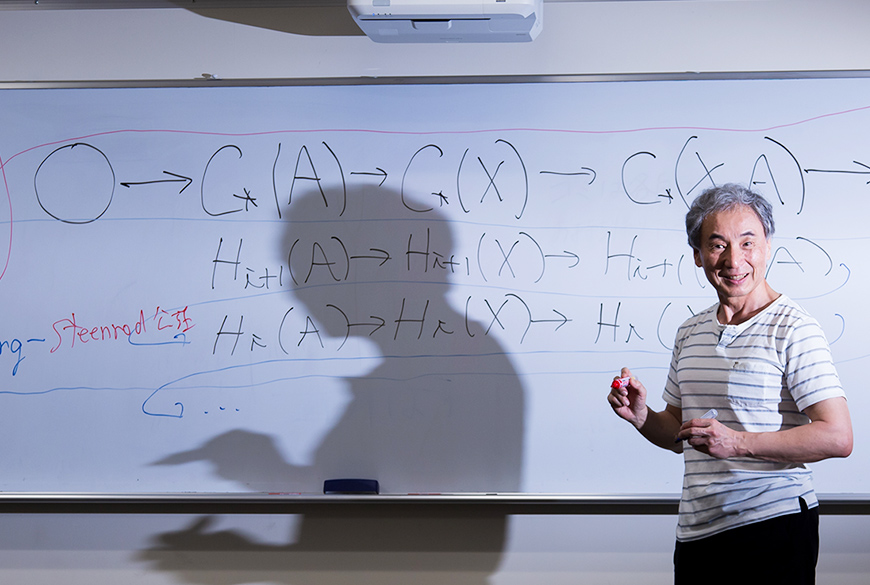 O → C*(A) → C*(X) → C*(X A) →
Hi+1(A) → Hi+1(X) → Hi+1( A)
ng- Steenrod 公理
Hi(A) → Hi(X) → Hi(X
...